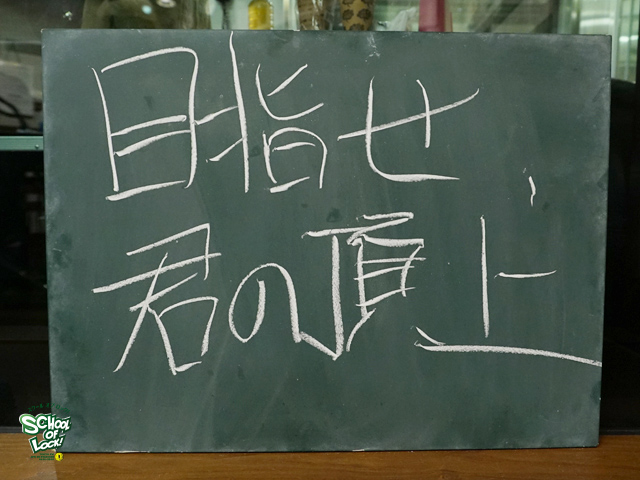 目指せ
君の頂上
SCHOOL
OF
LOCK!